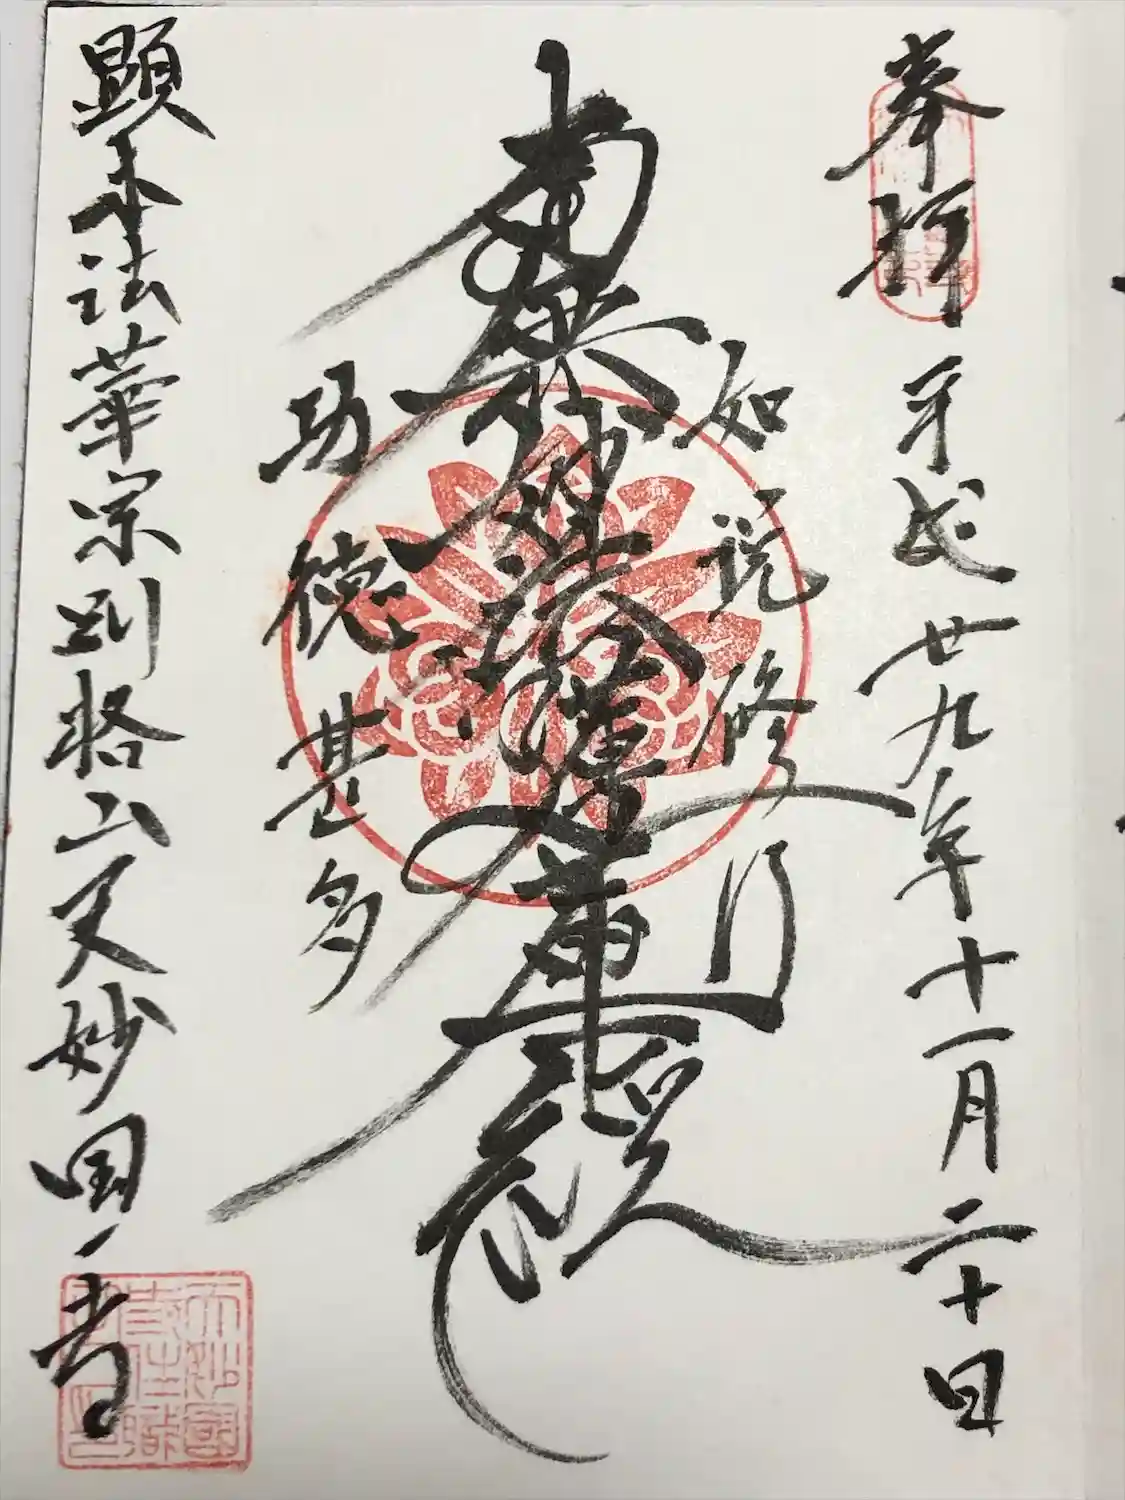 奉拝 平成廿九年十一月二十日
如説修行
南無妙法蓮華経
功徳甚多
顕本法華宗別格山天妙国寺
天妙國
寺住職